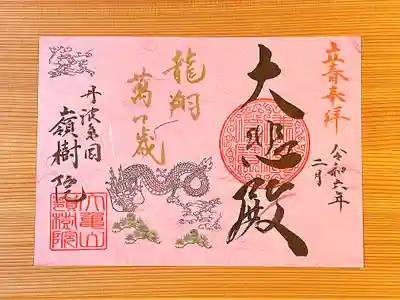 立春奉拝
令和六年
二月
大悲殿
龍翔
萬歳
丹波氷上
嶺樹院
八亀山
嶺樹院